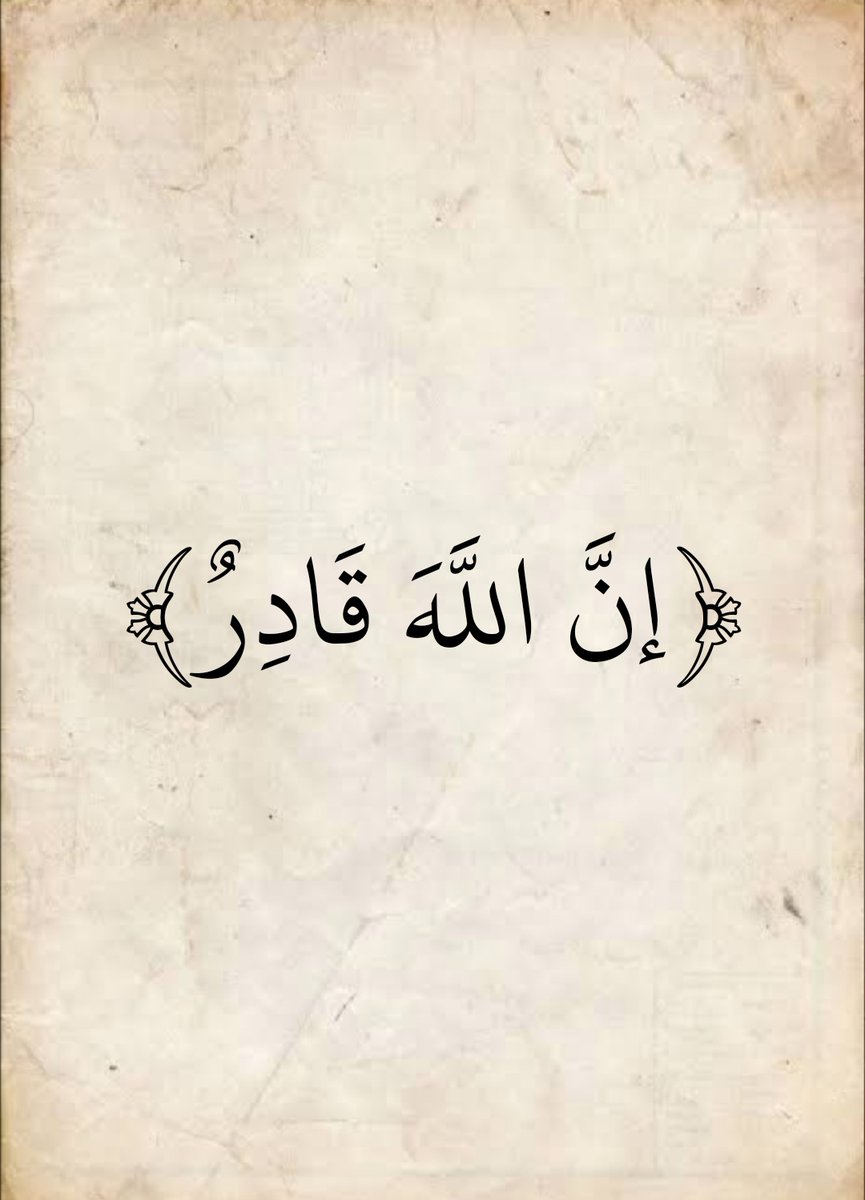 ﴿إنَّ اللَّهَ قَادِرٌ﴾